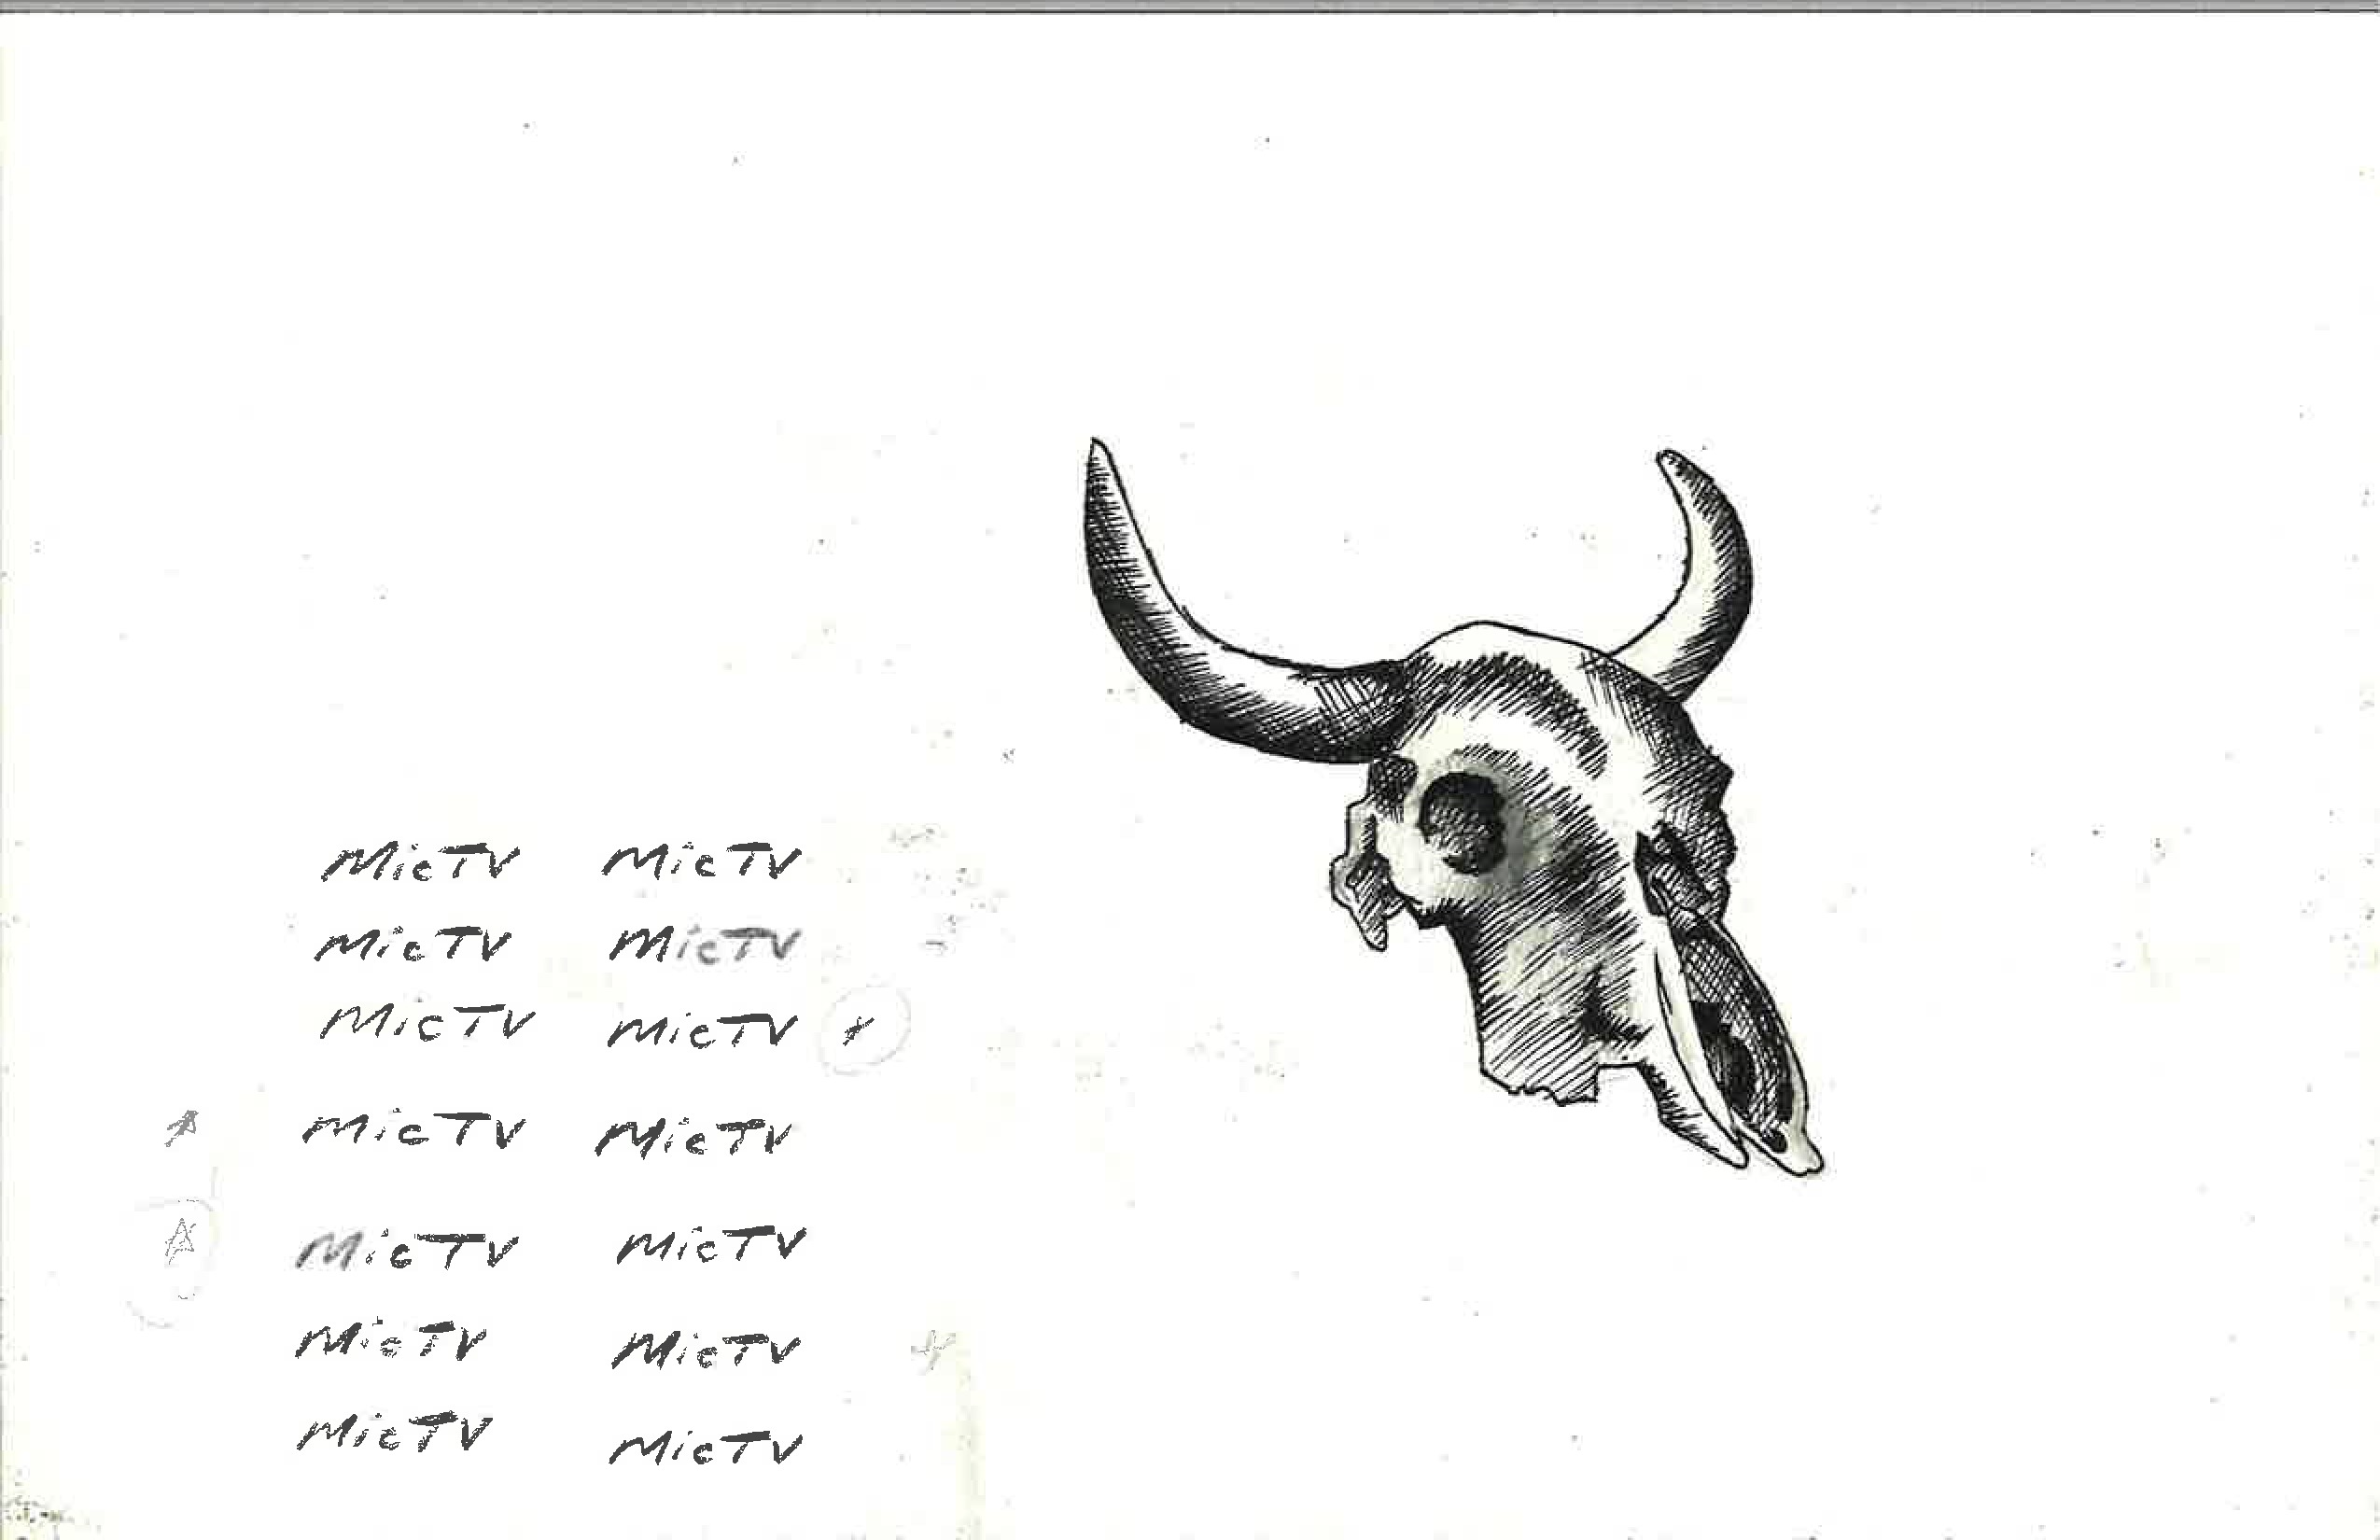 MicTV MicTV
MicTV MicTV
MicTV MicTV
MicTV MicTV
MicTV MicTV
MicTV MicTV
MicTV MicTV